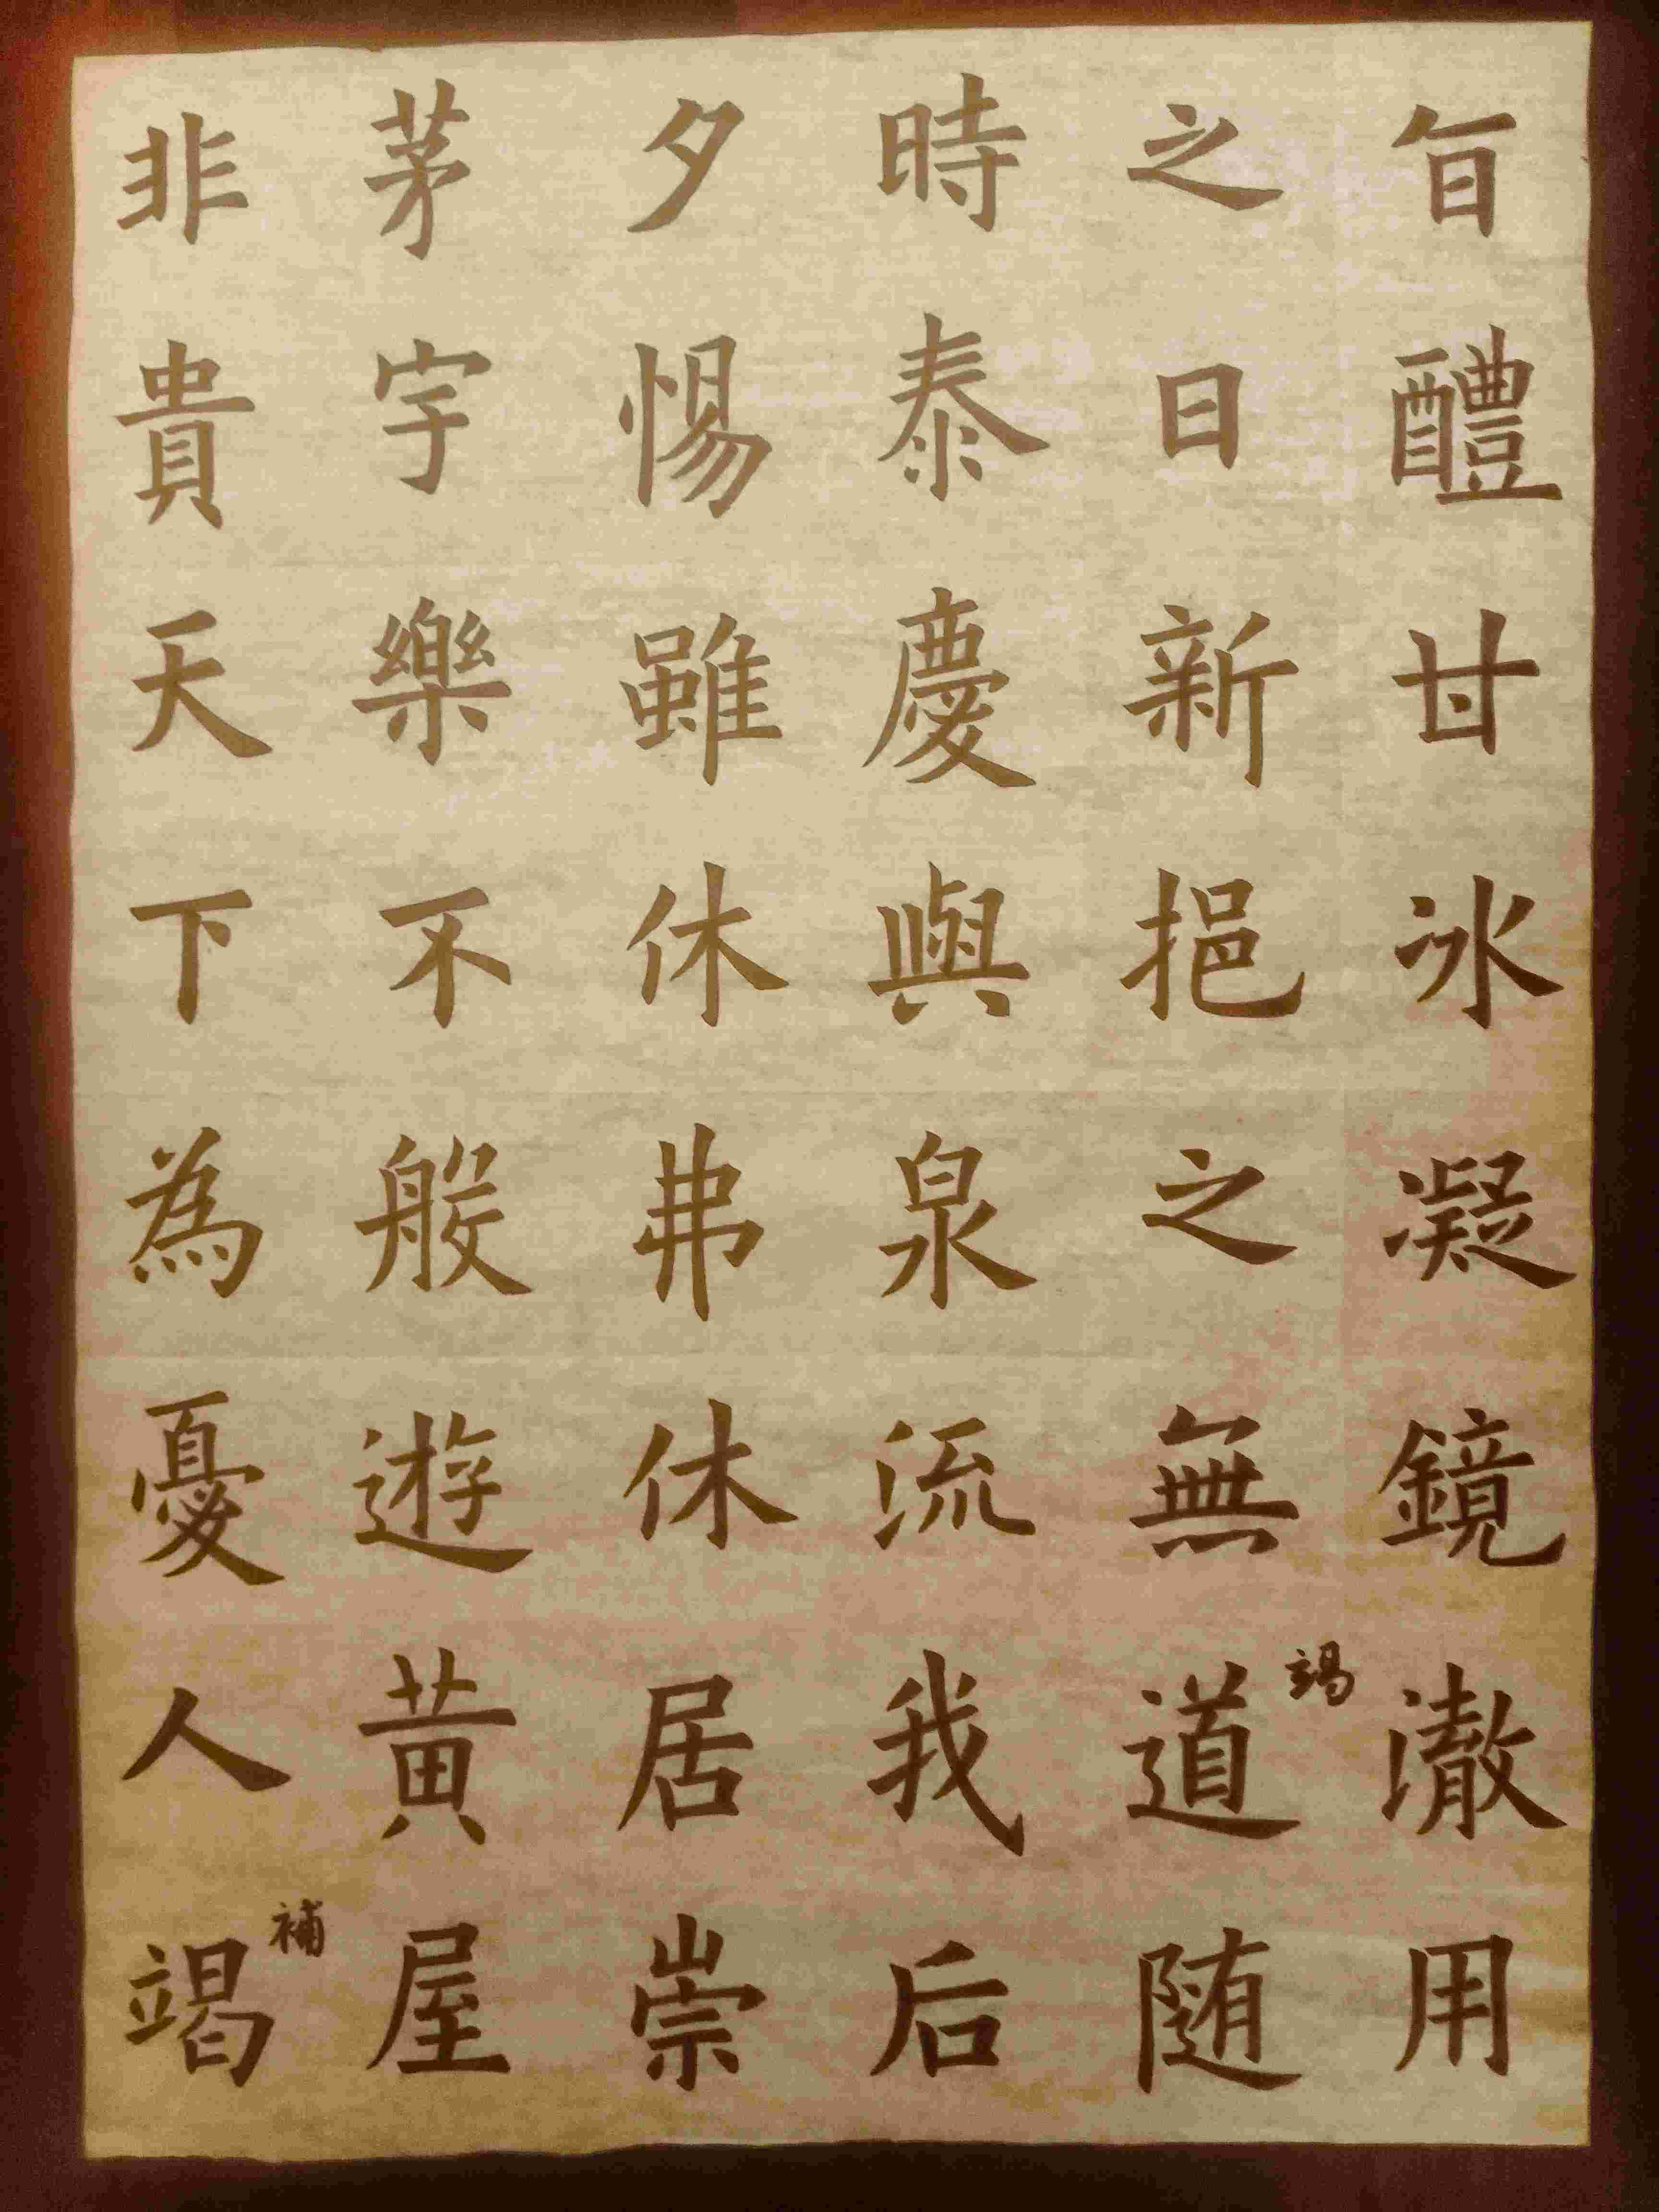 旨醴甘冰凝鏡澈用
之日新挹之無竭道随
時泰慶與泉流我后
夕惕雖休弗休居崇
茅宇樂不般遊黃屋
非貴天下為憂人竭補